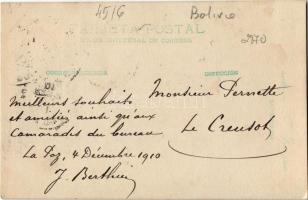 45/6
Bolivie
TARJETA POSTAL
UNION UNIVERSAL DE CORREOS
270
CORRESPONDENCIA
DIRECCION
Meilleurs souhaits
et amitiés ainsi qu'aux
Camarades du bureau
La Paz, 4 Décembre 1910
J. Berthier
Monsieur Pernette
Le Creusot